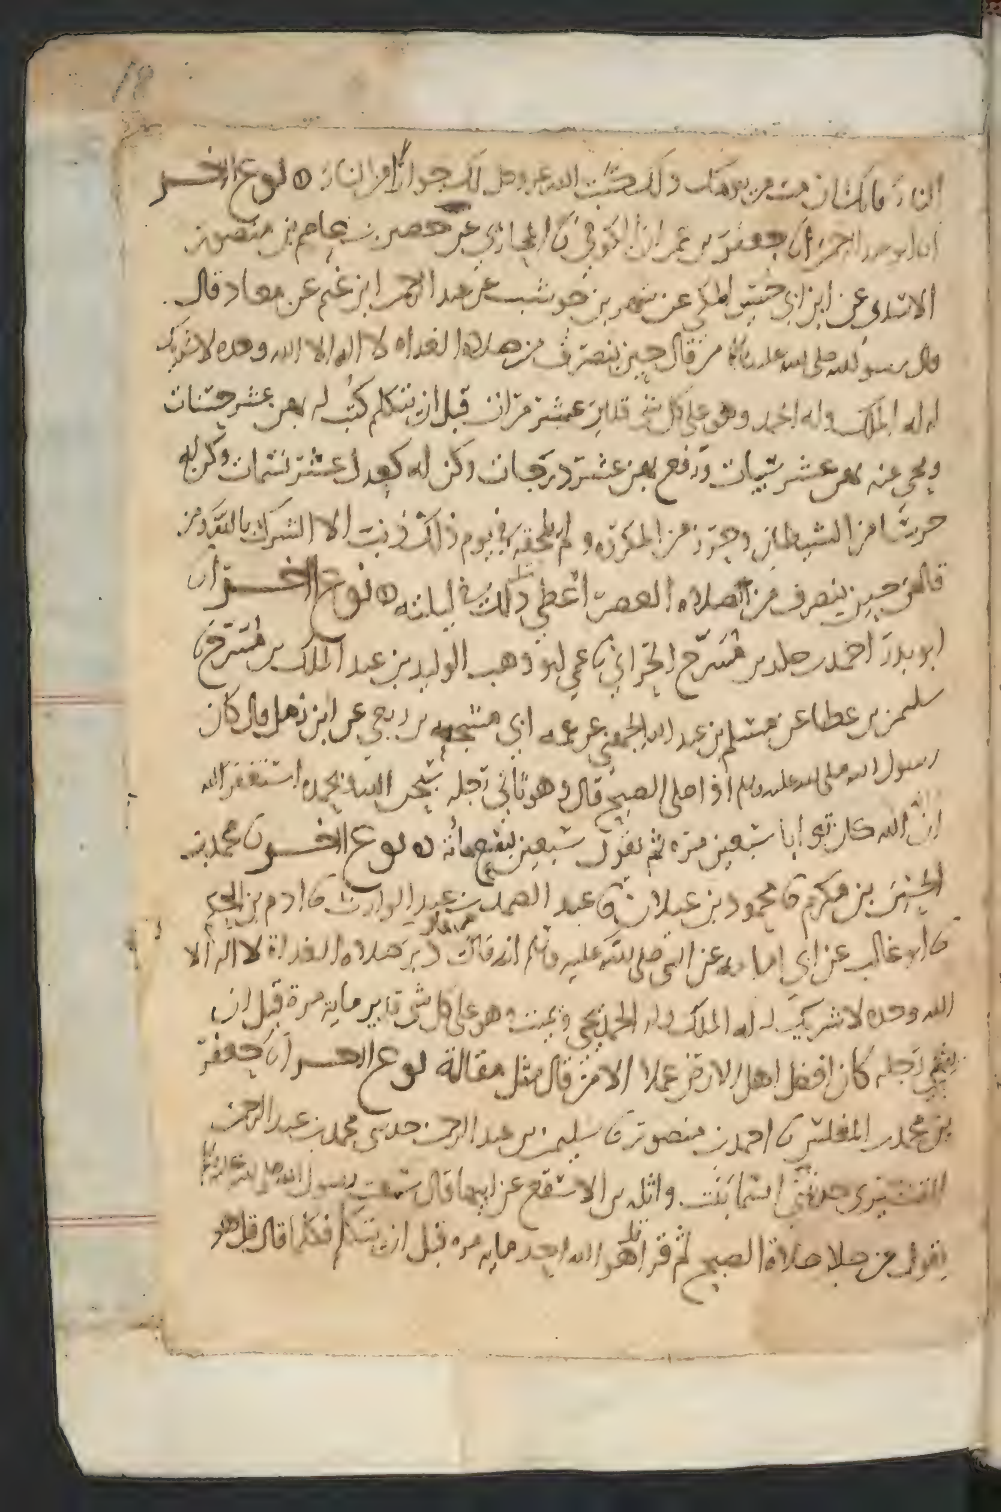 18
النار فانك ان مت من يومك ذلك كتب الله عز وجل لك جوازا من النار نوع اخر
ابو عبد الرحمن انا جعفر بن عمران الكوفي نا المحاربي عن حصين بن عاصم بن منصور
الاسدي عن ابن ابي حسين المكي عن شهر بن حوشب عن عبد الرحمن ابن غنم عن معاذ قال
قال رسول الله صلى الله عليه من قال حين ينصرف من صلاة الغداه لا اله الا الله وحده لا شريك
له له الملك وله الحمد وهو على كل شي قدير عشر مرات قبل ان يتكلم كتب له بهن عشر حسنات
ومحي عنه بهن عشر سيات ورفع بهن عشر درجات وكن له كعدل عشر نسمات وكن له
حرسا من الشيطان وحرزا من المكروه ولم يلحقه في يوم ذلك ذنب الا الشرك بالله ومن
قالهن حين ينصرف من صلاه العصر اعطي مثل ذلك في ليلته نوع اخر
ابو بدر احمد بن خلد بن مسرح الحراني نا عمي ابو وهب الوليد بن عبد الملك بن مسرح نا
سليمن بن عطا عن مسلم بن عبد الله الجهني عن عمه ابي مشجعه بن ربعي عن ابن زمل قال كان
رسول الله صلى الله عليه وسلم اذا صلى الصبح قال وهو ثاني رجله سبحن الله وبحمده استغفر الله
ان الله كان توابا سبعين مره ثم يقول سبعين بسبع مائه نوع اخر نا محمد بن
الحسين بن مكرم نا محمود بن غيلان نا عبد الصمد بن عبد الوارث نا ادم بن الحكم
نا ابو غالب عن ابي امامه عن النبي صلى الله عليه وسلم انه قال من قال دبر صلاه الغداة لا اله الا
الله وحده لا شريك له له الملك وله الحمد يحيي ويميت وهو على كل شي قدير مايه مرة قبل ان
يثني رجله كان افضل اهل الارض عملا الا من قال مثل مقالة نوع اخر انا جعفر
بن محمد المغلس نا احمد بن منصور نا سليمن بن عبد الرحمن حدثني محمد بن عبد الرحمن
القشيري حدثتني اسما بنت واثله بن الاسقع عن ابيها قال سمعت رسول الله صلى الله عليه
يقول من صلا صلاة الصبح ثم قرا قل هو الله احد مايه مره قبل ان يتكلم فكلما قال قل هو